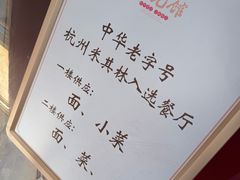 馆
中华老字号
杭州米其林入选餐厅
一楼供应:
面、小菜
二楼供应:
面、菜、